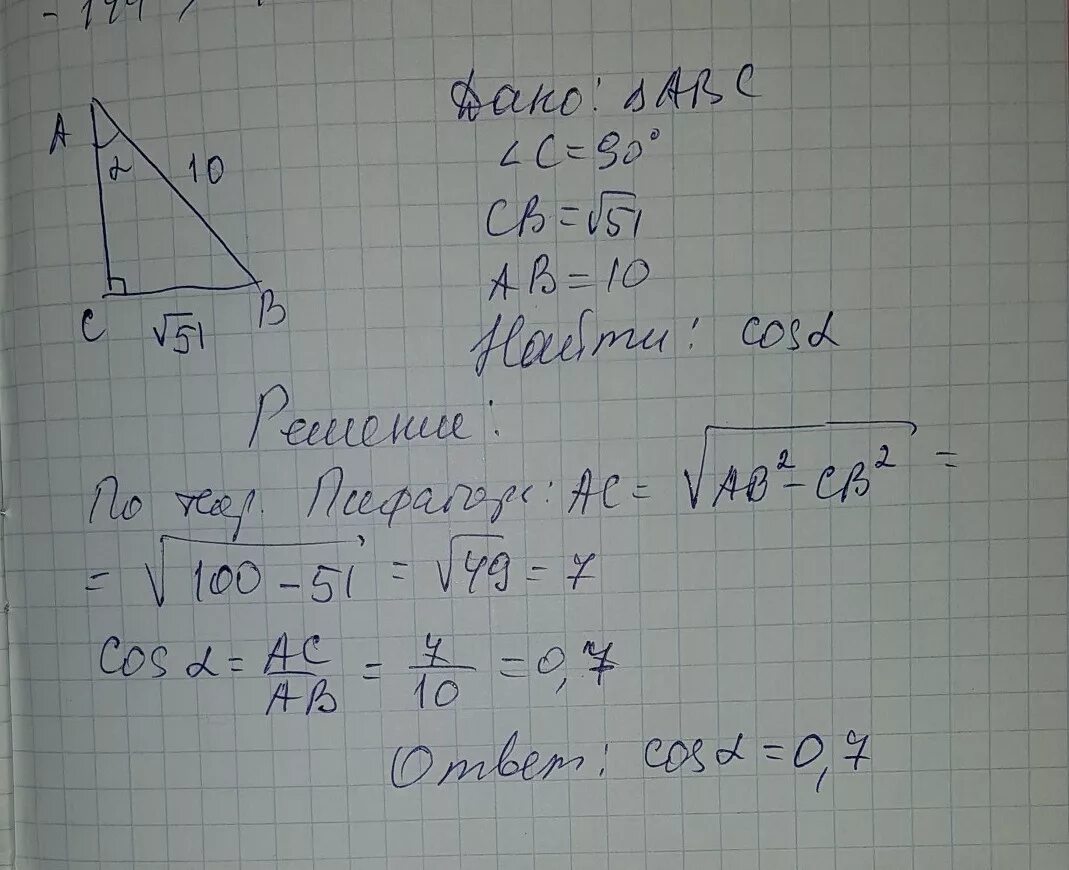 Дано: ΔABC
∠C=90°
CB=√51
AB=10
Найти: cosα
A
α
10
C
B
√51
Решение:
По теор. Пифагора: AC = √AB²-CB² =
= √100-51 = √49 = 7
Cos α = AC/AB = 7/10 = 0,7
Ответ: cosα=0,7